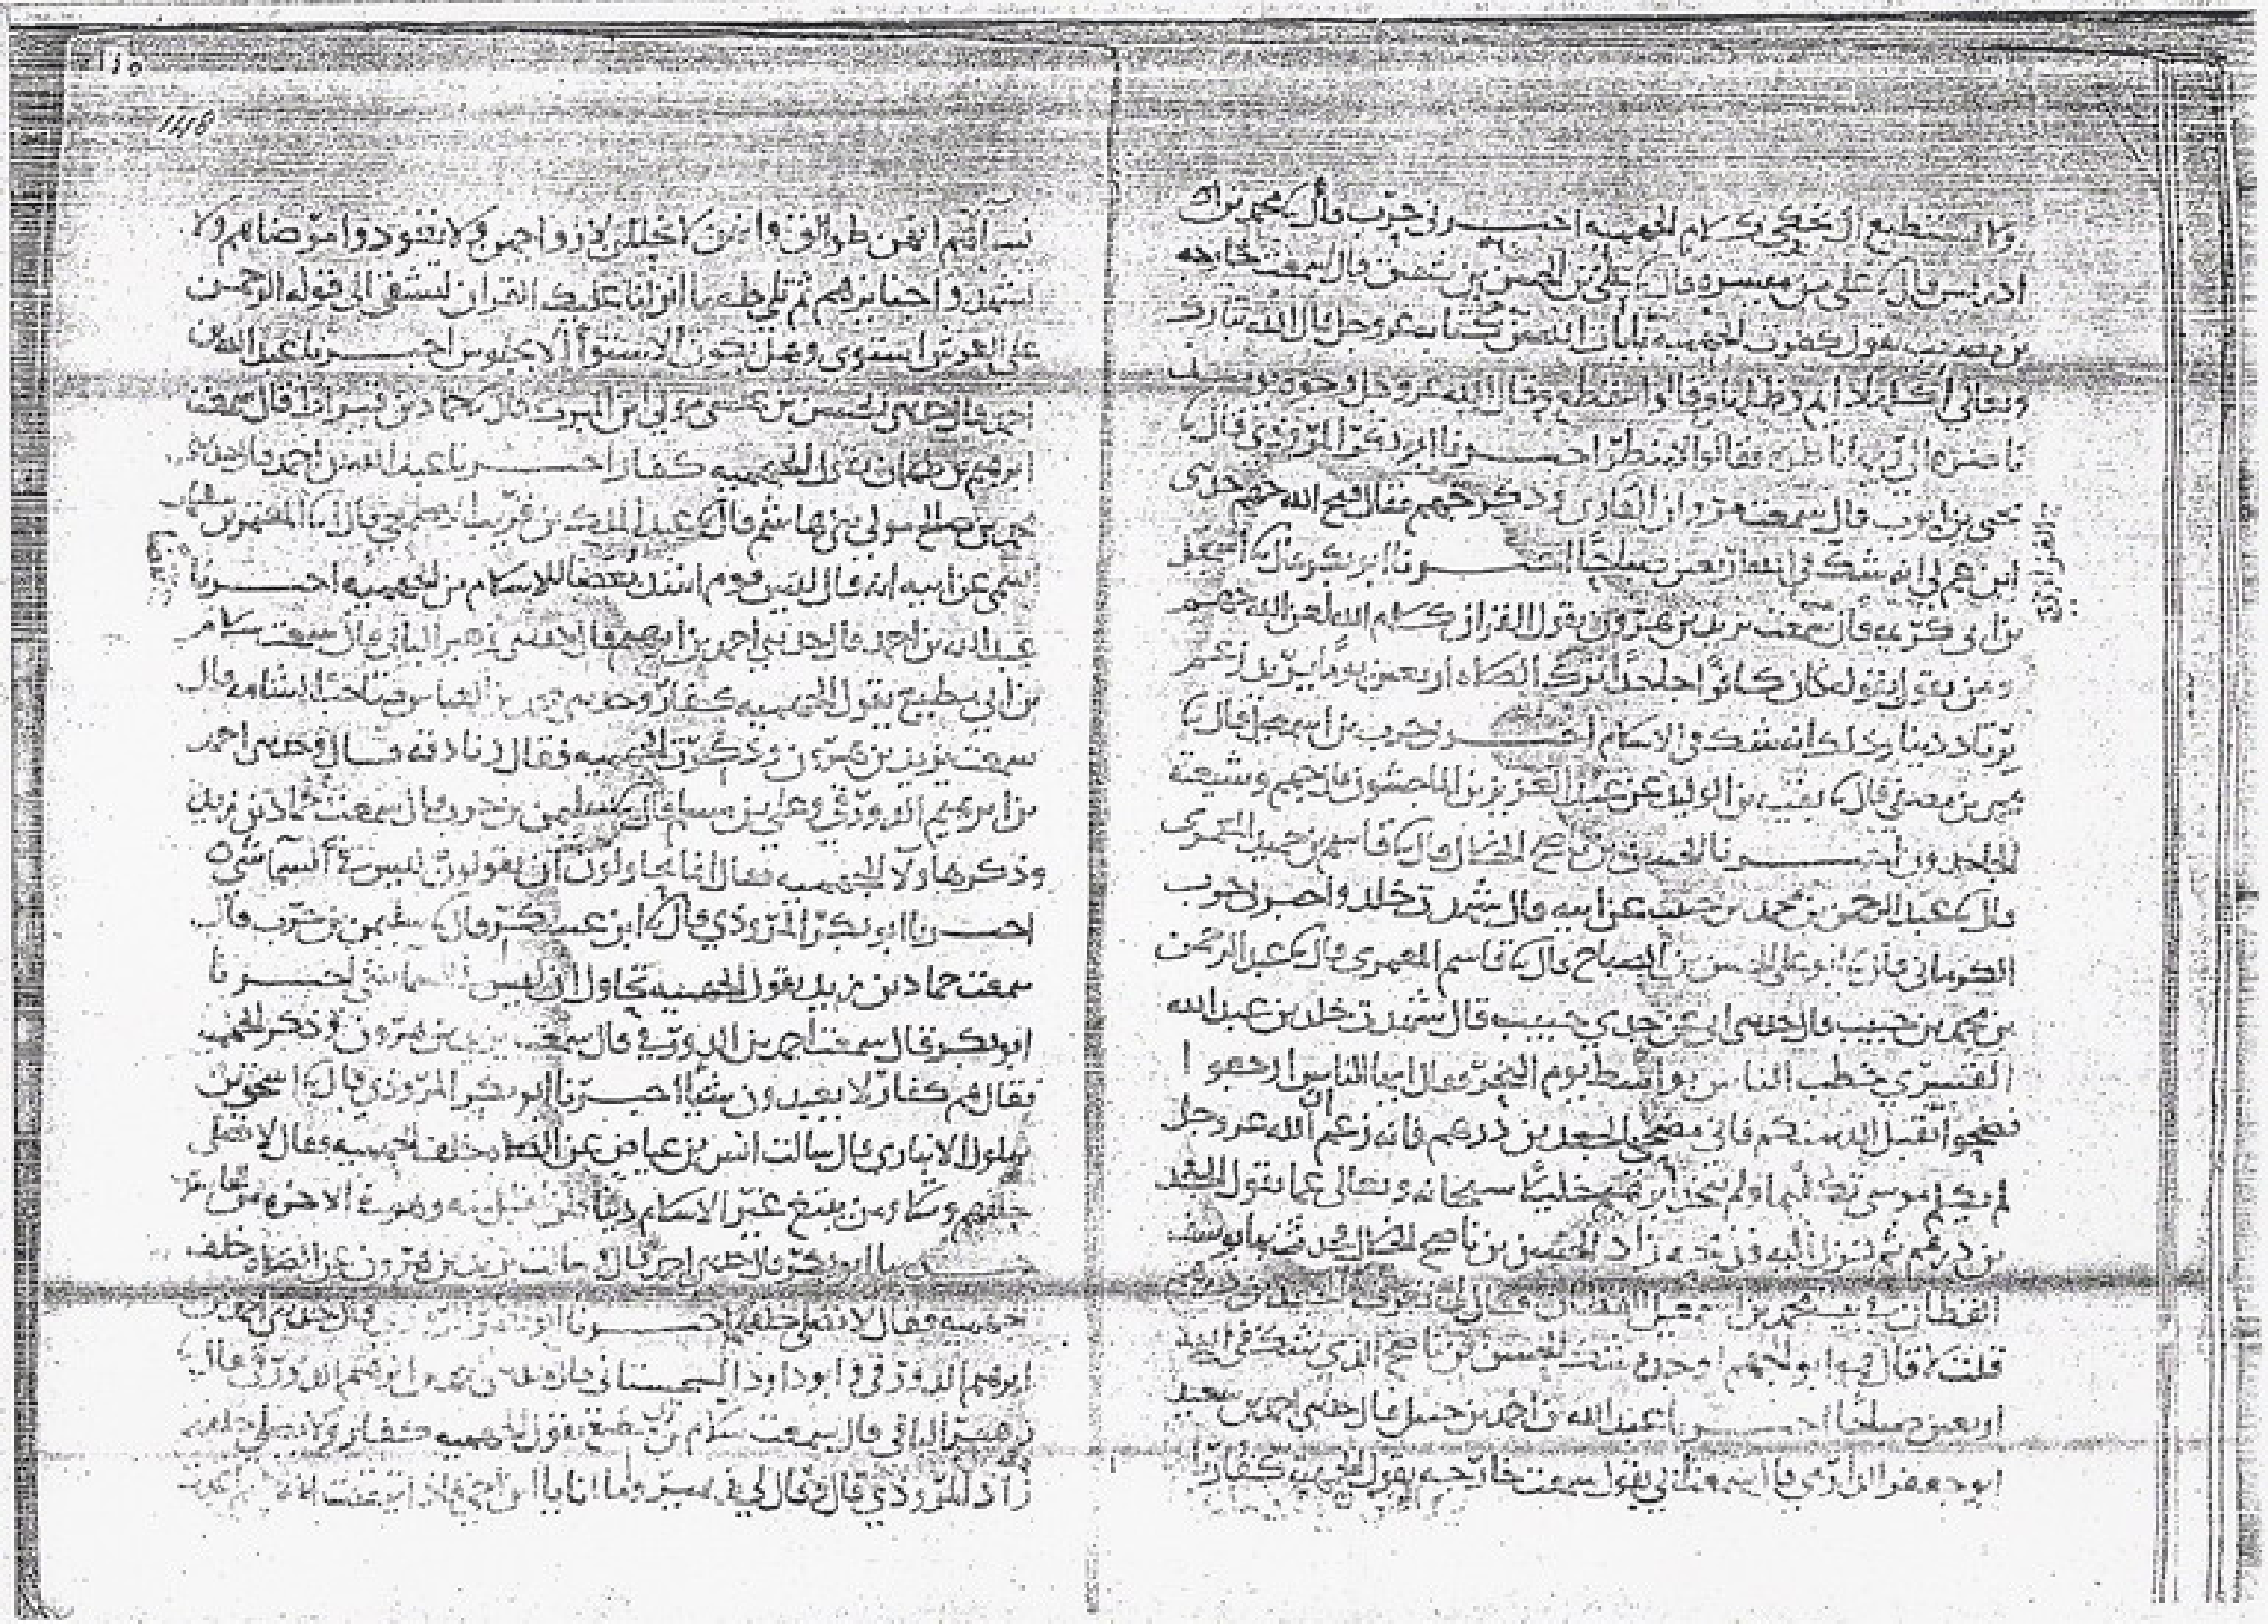 ولا نستطيع ان نحكي كلام الجهميه اخبرني حرب قال محمد بن
ادريس قال علي بن ميسره قال علي بن الحسن بن شقيق قال سمعت خارجه
بن مصعب يقول كفرت الجهميه بايات الله من كتاب عز وجل قال الله تبارك
وتعالى اكلها دايم وظلها وقالوا ينقطع وقال الله عز وجل وجوه يومئذ
ناضره الى ربها ناظره فقالوا لا ينظر اخبرنا ابو بكر المروذي قال
يحيى بن ايوب قال سمعت مروان الفزاري وذكر جهم فقال قبح الله جهم حدثني
ابن عم لي انه شك في الله اربعين صباحا اخبرنا ابو بكر قال اسمعيل
بن ابي كريمه قال سمعت يزيد بن هرون يقول القران كلام الله لعن الله جهم
ومن يقول بقوله كان كافرا جاحدا ترك الصلاه اربعين يوما يريد زعم
يرتاد دينا وذلك انه شك في الاسلام اخبرني حرب بن اسمعيل قال
بن مصفى قال بقيه بن الوليد عن عبد العزيز بن الماجشون قال جهم وشيعته
الجاحدون اخبرنا الحسن بن ناصح الخلال قال قاسم بن حميد المعمري
قال عبد الرحمن بن محمد بن حبيب عن ابيه قال شهدت خلد واخبرني حرب
الكرماني قال ابو علي الحسن بن الصباح قال قاسم المعمري قال عبد الرحمن
بن محمد بن حبيب قال حدثني ابي عن جدي حبيب قال شهدت خلد بن عبد الله
القسري خطب الناس بواسط يوم النحر فقال ايها الناس ارجعوا
فضحوا تقبل الله منكم فاني مضحي بالجعد بن درهم فانه زعم الله عز وجل
لم يكلم موسى تكليما ولم يتخذ ابرهيم خليلا سبحانه وتعالى عما يقول الجعد
بن درهم ثم نزل اليه فذبحه زاد الحسن بن ناصح الخلال فحدثت بها يوسف
القطان في بيت محمد بن اسمعيل القطان فقال لي تعرف الجعد بن درهم
قلت لا قال هو ابو الجهم او جده الحسن بن ناصح الذي شك في الله
اربعين صباحا اخبرنا عبد الله بن احمد بن حنبل قال حدثني احمد بن سعيد
ابو جعفر الدارمي قال سمعت ابي يقول سمعت خارجه يقول الجهميه كفار
الفزاري
نساهم انهن طوالق وانهن لا يحللن لازواجهن ولا تعودوا مرضاهم ولا
تشهدوا جنايزهم ثم تلى طه ما انزلنا عليك القران لتشقى الى قوله الرحمن
على العرش استوى وهل يكون الاستوا الا بجلوس اخبرنا عبد الله بن
احمد قال حدثني الحسن بن عيسى مولى ابن المبرك قال حماد بن قيراط قال سمعت
ابرهيم بن طهمان يقول الجهميه كفار اخبرنا عبد الله بن احمد قال حدثني
محمد بن صالح مولى بني هاشم قال عبد الملك بن قريب الاصمعي قال انا المعتمر بن سليمان
التيمي عن ابيه انه قال ليس قوم اشد بغضا للاسلام من الجهميه اخبرنا
عبد الله بن احمد قال حدثني احمد بن ابرهيم قال حدثني زهير البابي قال سمعت سلام
بن ابي مطيع يقول الجهميه كفار وحدثني محمد بن العباس صاحب الشامه قال
سمعت يزيد بن هرون وذكرت الجهميه فقال زنادقه قال وحدثني احمد
بن ابرهيم الدورقي وعلي بن مسلم قال سليمن بن حرب قال سمعت حماد بن زيد
وذكر هاولا الجهميه فقال انما يحاولون ان يقولون ليس في السما شي
اخبرنا ابو بكر المروذي قال ابن عسكر قال سليمن بن حرب قال
سمعت حماد بن زيد يقول الجهميه تحاول ان ليس في السما شي اخبرنا
ابو بكر قال سمعت احمد بن الدورقي قال سمعت يزيد بن هرون وذكر الجهميه
فقال هم كفار لا يعبدون شيا اخبرنا ابو بكر المروذي قال اسحق بن
بهلول الانباري قال سالت انس بن عياض عن الصلاه خلف الجهميه فقال لا تصلي
خلفهم وتلا ومن يبتغ غير الاسلام دينا فلن يقبل منه وهو في الاخره من الخاسرين
اخبرنا ابو بكر قال حدثني احمد قال سالت يزيد بن هرون عن الصلاه خلف
جهميه فقال لا تصلى خلفهم اخبرنا ابو بكر المروذي قال حدثني احمد بن
ابرهيم الدورقي وابو داود السجستاني قال احمد بن ابرهيم الدورقي قال
زهير البابي قال سمعت سلام بن ابي مطيع يقول الجهميه كفار ولا يصلى خلفهم
زاد المروذي قال وقال لي زهير واما انا يا ابن اخي فاذا تيقنت انه جهمي